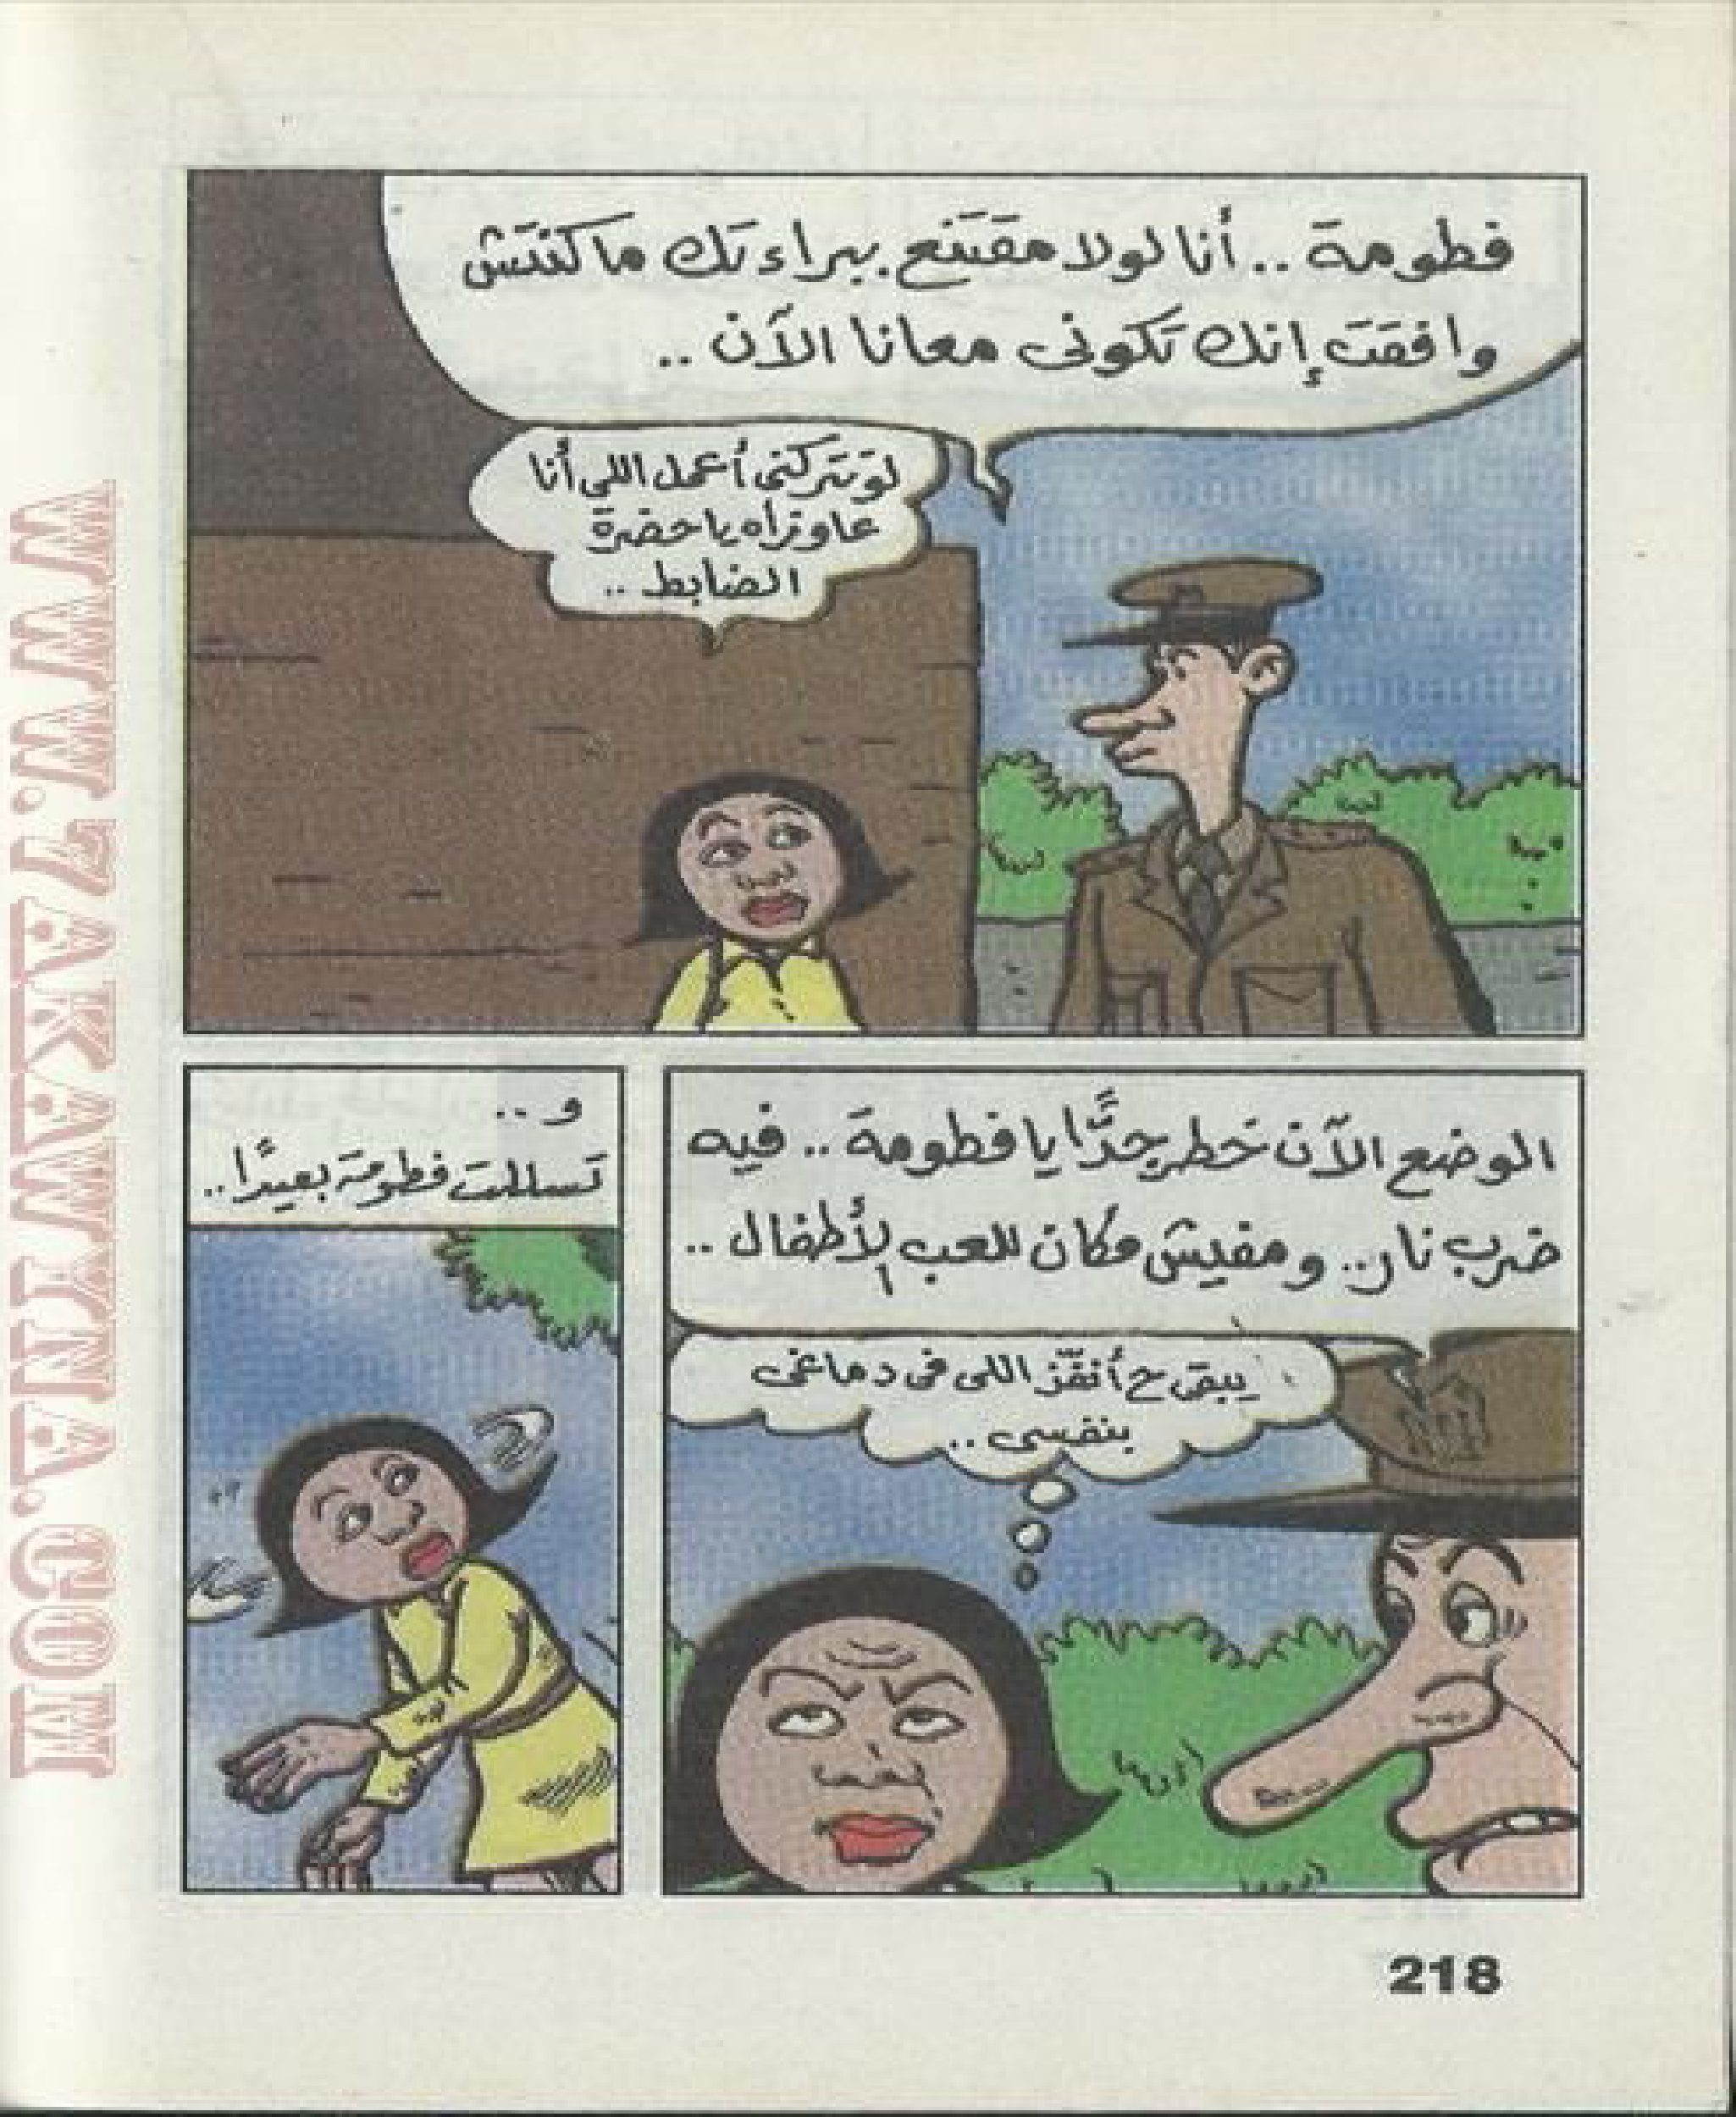 فطومة .. أنا لولا مقتنع ببراءتك ماكنتش
وافقت إنك تكونى معانا الآن ..
لو تتركنى أعمل اللى أنا
عاوزاه يا حضرة
الضابط ..
الوضع الآن خطر جدًّا يا فطومة .. فيه
ضرب نار .. ومفيش مكان للعب لأطفال ..
يبقى ح أنفّز اللى فى دماغى
بنفسى ..
و ..
تسللت فطومة بعيدًا ..
218
WWW.7AKAWTNA.COM